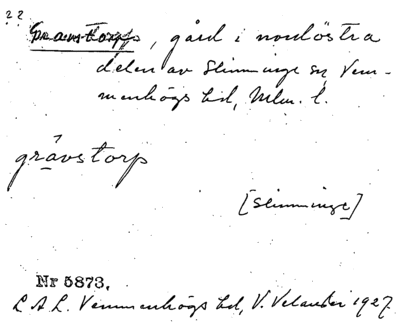 ??
Gravstorp, gård i nordöstra
delen av Slimminge sn, Vem-
menhögs hd, Mlm. l.
grávstorp
[Slimminge]
Nr 5873.
L A L. Vemmenhögs hd, V. Velander 1927.